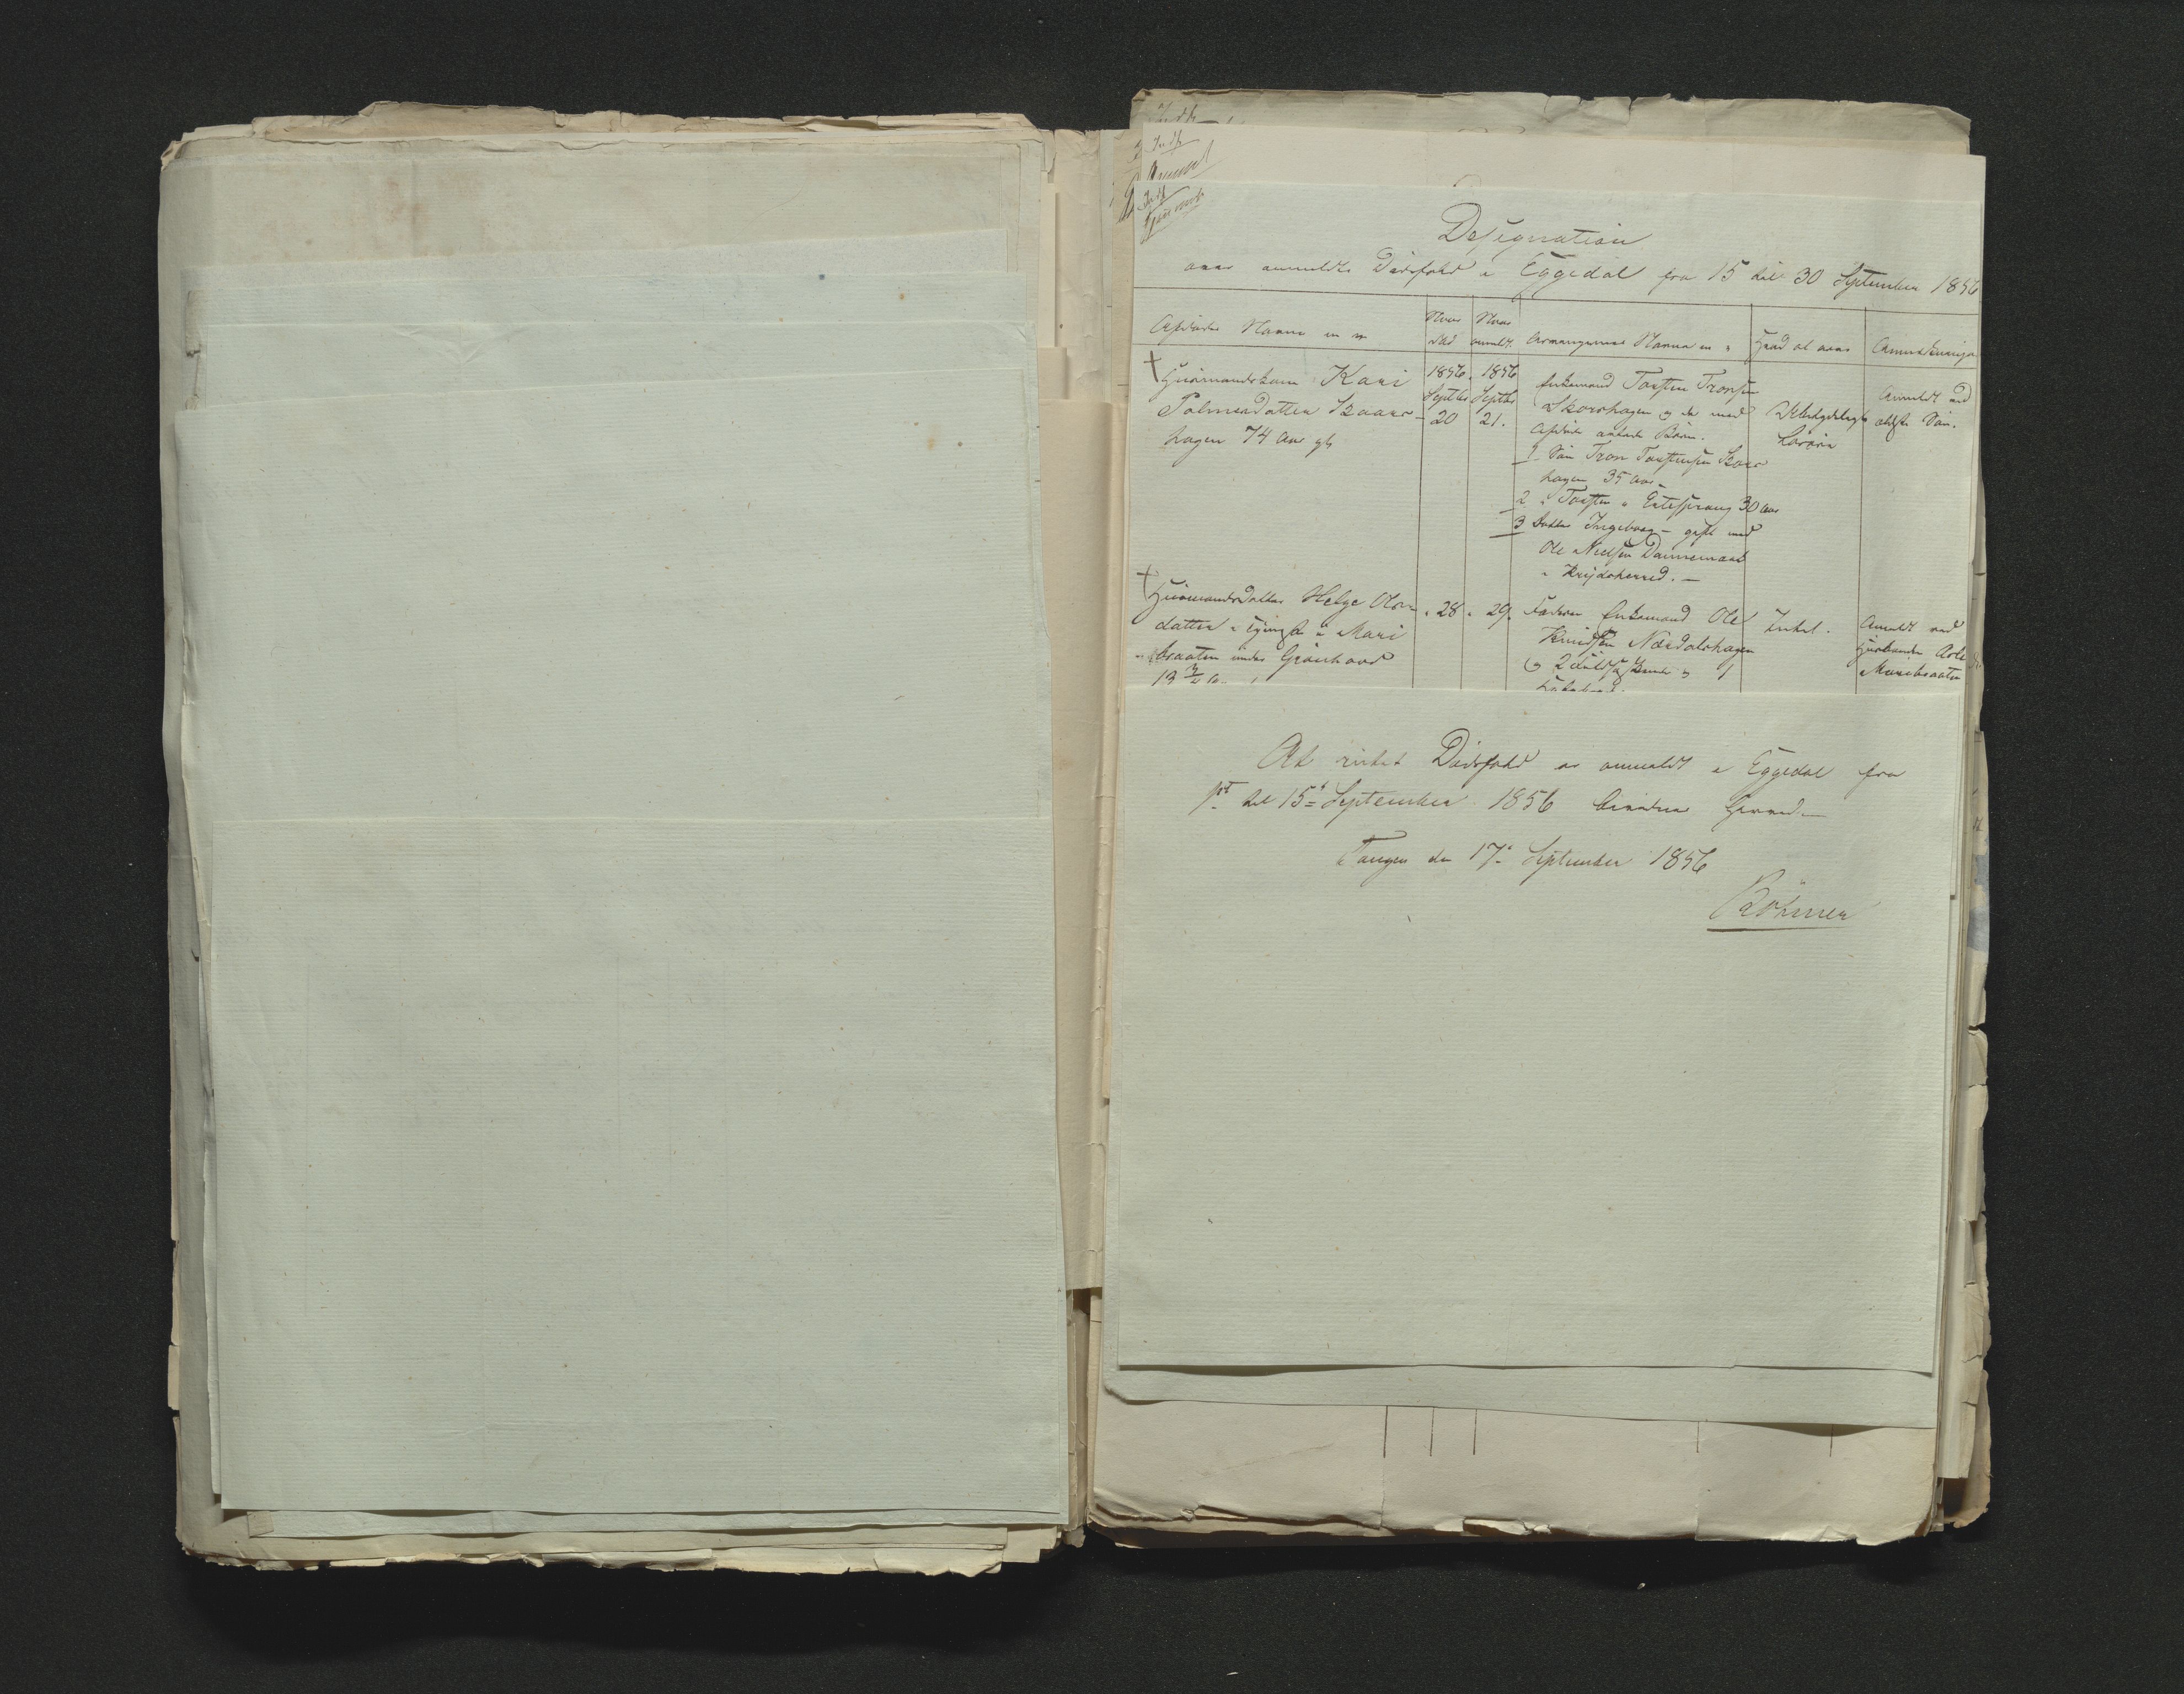 Indk
Designation
over anmeldte Dødsfald i Eggedal fra 15 til 30 September 1856
Afdødes Navn m m
Naar død
Naar anmeldt
Arvingernes Navne m m
Hvad at arve
Anmærkninger
† Huusmandskone Kari
Palmesdatter Skaars-
hagen 74 Aar gl
1856 Septbr 20
1856 Septbr 21.
Enkemand Torsten Tronsen
Skorshagen og de med
Afdøde avlede Børn.
1 Søn Tron Torstensen Skors
hagen 35 Aar
2 " Torsten " Entesprang 30 Aar
3 Datter Ingeborg - gift med
Ole Nielsen Dannemark
i Krydsherred. -
Ubetydeligt
Løsøre
Anmeldt ved
ældste Søn.
† Huusmandsdatter Helge Ols-
datter i Mari
braaten under Grønhovd
13
" 28
" 29.
Faderen Enkemand Ole
Knudsen Nærdalshagen
og 2
Intet.
Anmeldt ved
Huusbonden
Maribraaten
At intet Dødsfald er anmeldt i Eggedal fra
1st til 15de September 1856 bevidnes herved. -
Tangen den 17de September 1856
Bøhmer